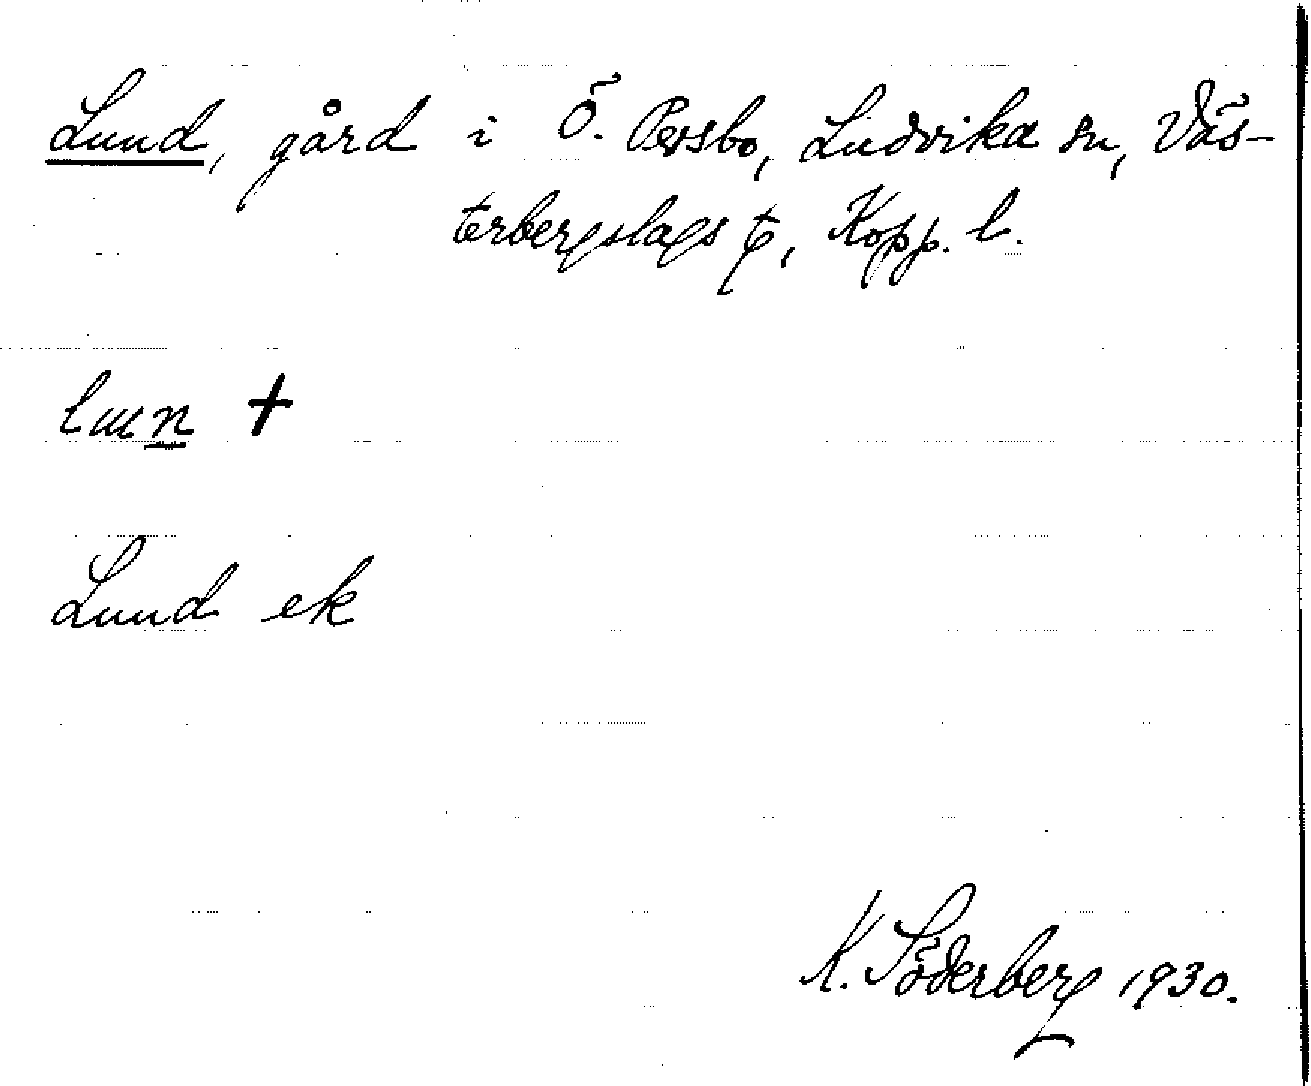 Lund, gård i Ö. Persbo, Ludvika sn, Väs-
terbergslags t, Kopp. l.
lun +
Lund ek
K. Söderberg 1930.